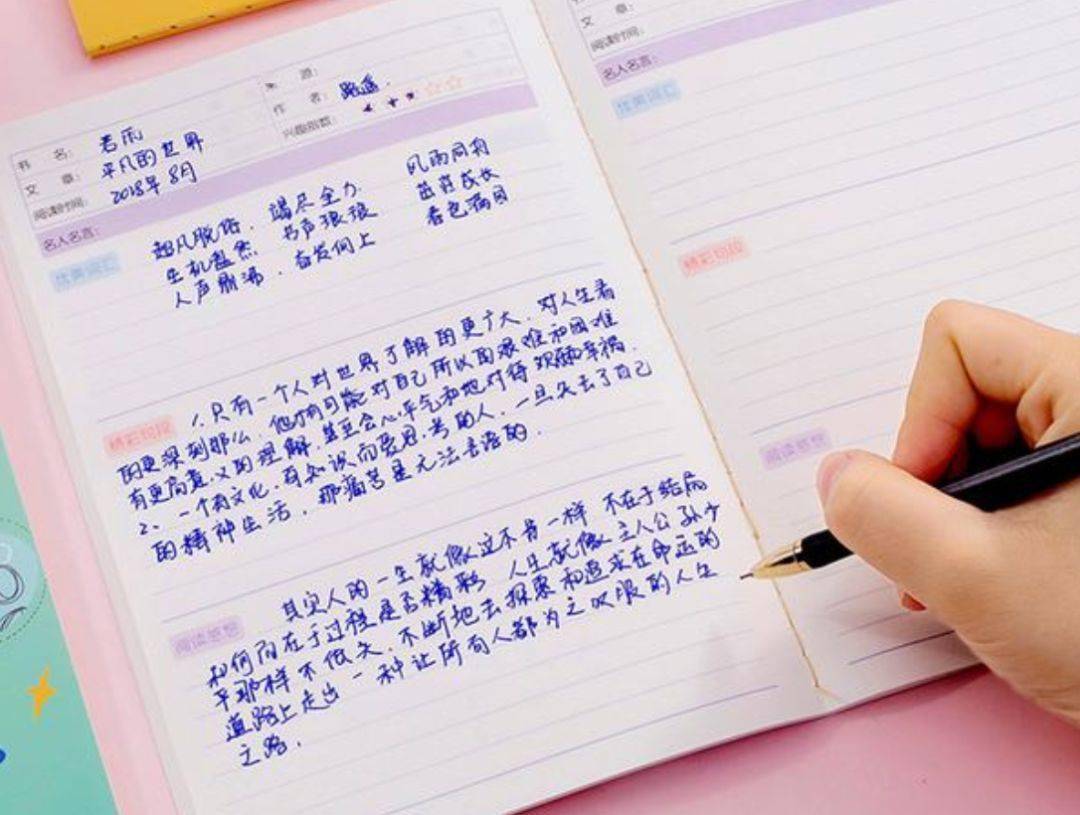 来 源:
书 名: 若雨
作 者: 路遥.
文 章: 平凡的世界
兴趣指数:
阅读时间: 2018年8月
名人名言:
优美词汇
超凡脱俗. 竭尽全力. 风雨同舟
生机盎然 书声琅琅 茁壮成长
人声鼎沸. 奋发向上 春色满园
精彩句段
1.只有一个人对世界了解的更广大. 对人生看
的更深刻那么. 他才有可能对自己所以的艰难和困难
有更高意义的理解. 甚至会心平气和地对待 幸福.
2、一个有文化. 有知识而爱思考的人. 一旦失去了自己
的精神生活. 那痛苦是无法言语的.
阅读感想
其实人的一生就像这不书一样 不在于结局
如何而在于过程是否精彩 人生就像主人公孙少
平那样不低 不断地去探索和追求在命运的
道路上走出一种让所有人都为之 的人生
之路.
文 章:
阅读时间:
名人名言:
优美词汇
精彩句段
阅读感想